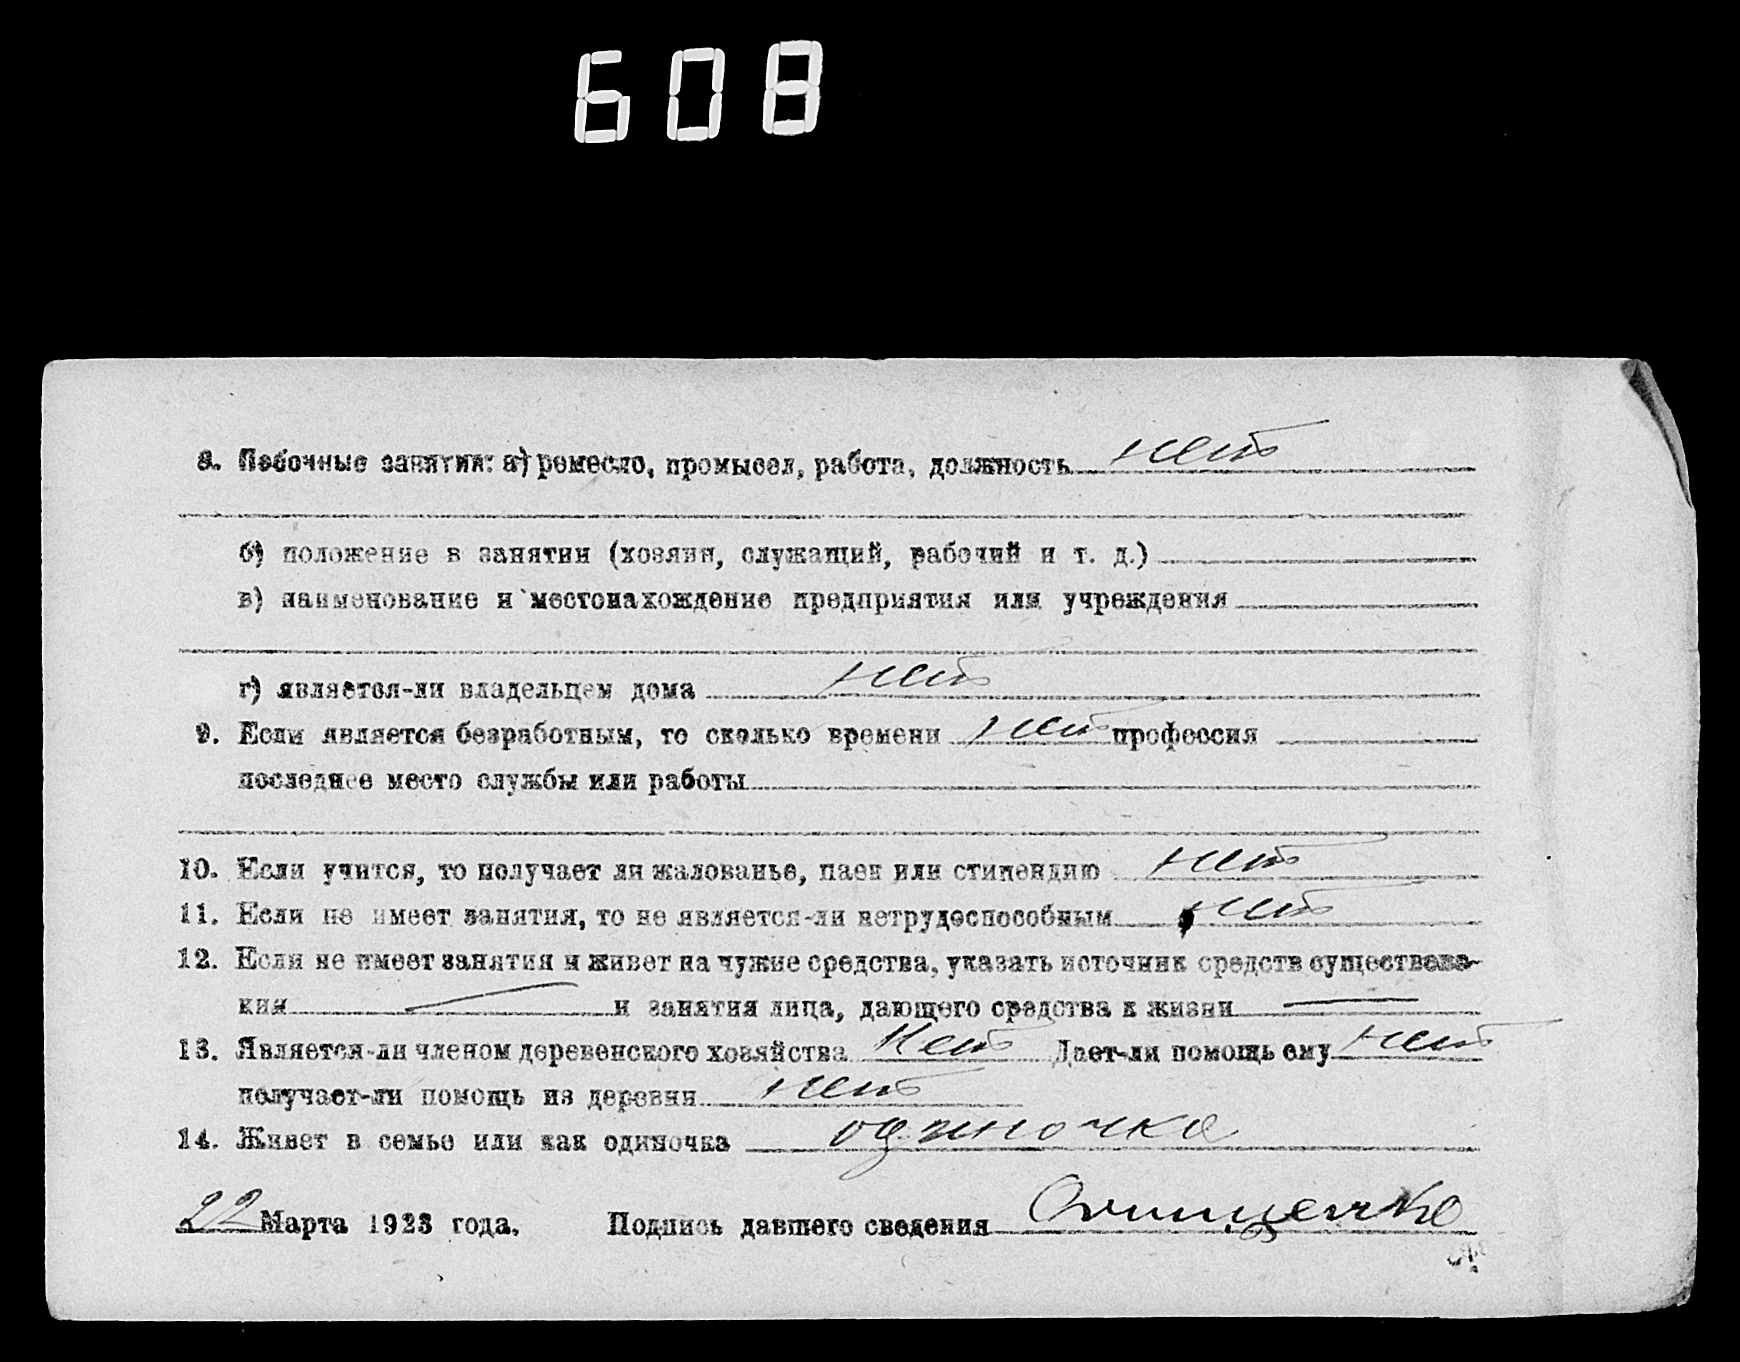 608
8. Побочные занятия: а) ремесло, промысел, работа, должность нет
б) положение в занятии (хозяин, служащий, рабочий и т. д.)
в) наименование и местонахождение предприятия или учреждения
г) является-ли владельцем дома нет
9. Если является безработным, то сколько времени нет профессия
последнее место службы или работы
10. Если учится, то получает ли жалованье, паек или стипендию нет
11. Если не имеет занятия, то не является-ли нетрудоспособным нет
12. Если не имеет занятия и живет на чужие средства, указать источник средств существова-
ния и занятия лица, дающего средства к жизни
13. Является-ли членом деревенского хозяйства Нет Дает-ли помощь ему нет
получает-ли помощь из деревни нет
14. Живет в семье или как одиночка одиночка
22 Марта 1923 года. Подпись давшего сведения